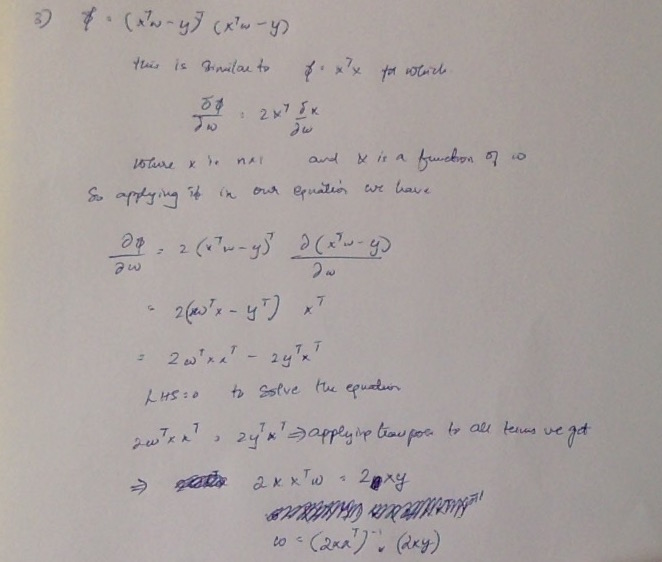 3) ϕ = (xᵀω - y)ᵀ (xᵀω - y)
this is similar to ϕ = xᵀx for which
∂ϕ/∂ω = 2xᵀ ∂x/∂ω
where x is nx1 and x is a function of ω
So applying it in our equation we have
∂ϕ/∂ω = 2(xᵀω - y)ᵀ ∂(xᵀω - y)/∂ω
= 2(ωᵀx - yᵀ) xᵀ
= 2ωᵀxxᵀ - 2yᵀxᵀ
LHS=0 to solve the equation
2ωᵀxxᵀ = 2yᵀxᵀ ⇒ applying transpose to all terms we get
⇒ 2xxᵀω = 2xy
ω = (2xxᵀ)⁻¹ . (2xy)